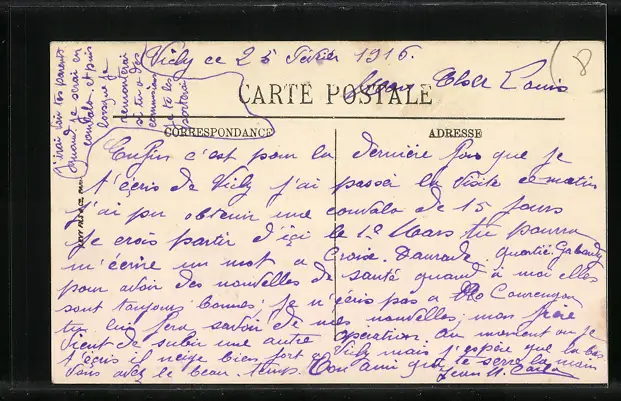 Vichy ce 25 Février 1916.
Mon Cher Louis
CARTE POSTALE
CORRESPONDANCE
ADRESSE
Enfin c'est pour la dernière fois que je
t'écris de Vichy j'ai passé la visite ce matin
j'ai pu obtenir une convalo de 15 jours
Je crois partir d'içi le 1er Mars tu pourra
m'écrire un mot a Croix. Daurade quartié
pour avoir des nouvelles de santé quand a moi elles
sont toujours bonnes; je n'écris pas a
tu lui fera savoir de mes nouvelles; mon frère
vient de subir une autre opération au moment ou je
t'écris il neige bien fort a Vichy mais j'espère que la bas
vous avez le beau temps. Ton ami qui te serre la main
Jean
j'irai voir tes parents
quand je serai en
convalo, et puis
lorsque je
remonterai
si tu a des
commissions
je te les
porterai